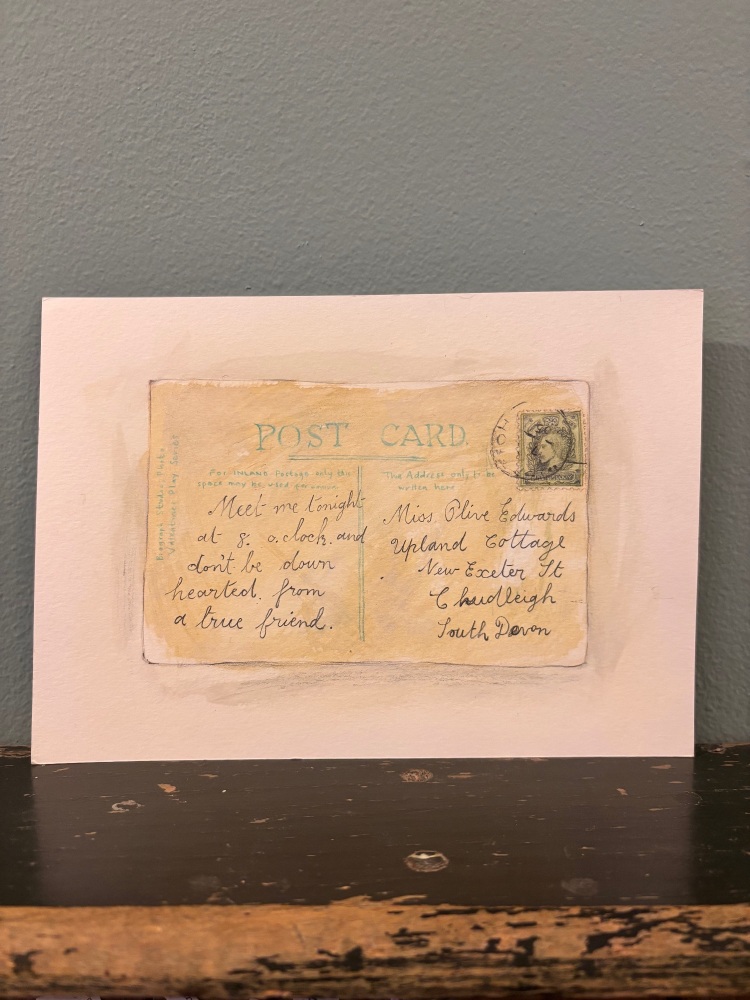 POST CARD.
For INLAND Postage only this
space may be used for
The Address only to be
written here
Meet me tonight
at 8. o.clock. and
don't be down
hearted. from
a true friend.
Miss Olive Edwards
Upland Cottage
New Exeter St
Chudleigh
South Devon